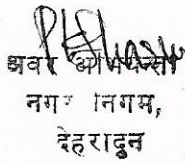 अवर अभियन्ता
नगर निगम,
देहरादून